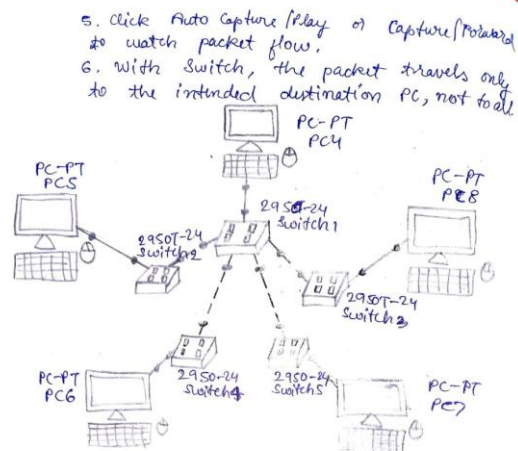 5. Click Auto Capture/Play or Capture/Forward
to watch packet flow.
6. With Switch, the packet travels only
to the intended destination PC, not to all
PC-PT
PC4
PC-PT
PC5
PC-PT
PC8
2950T-24
Switch1
2950T-24
Switch2
2950T-24
Switch3
PC-PT
PC6
2950-24
Switch4
2950-24
Switch5
PC-PT
PC7